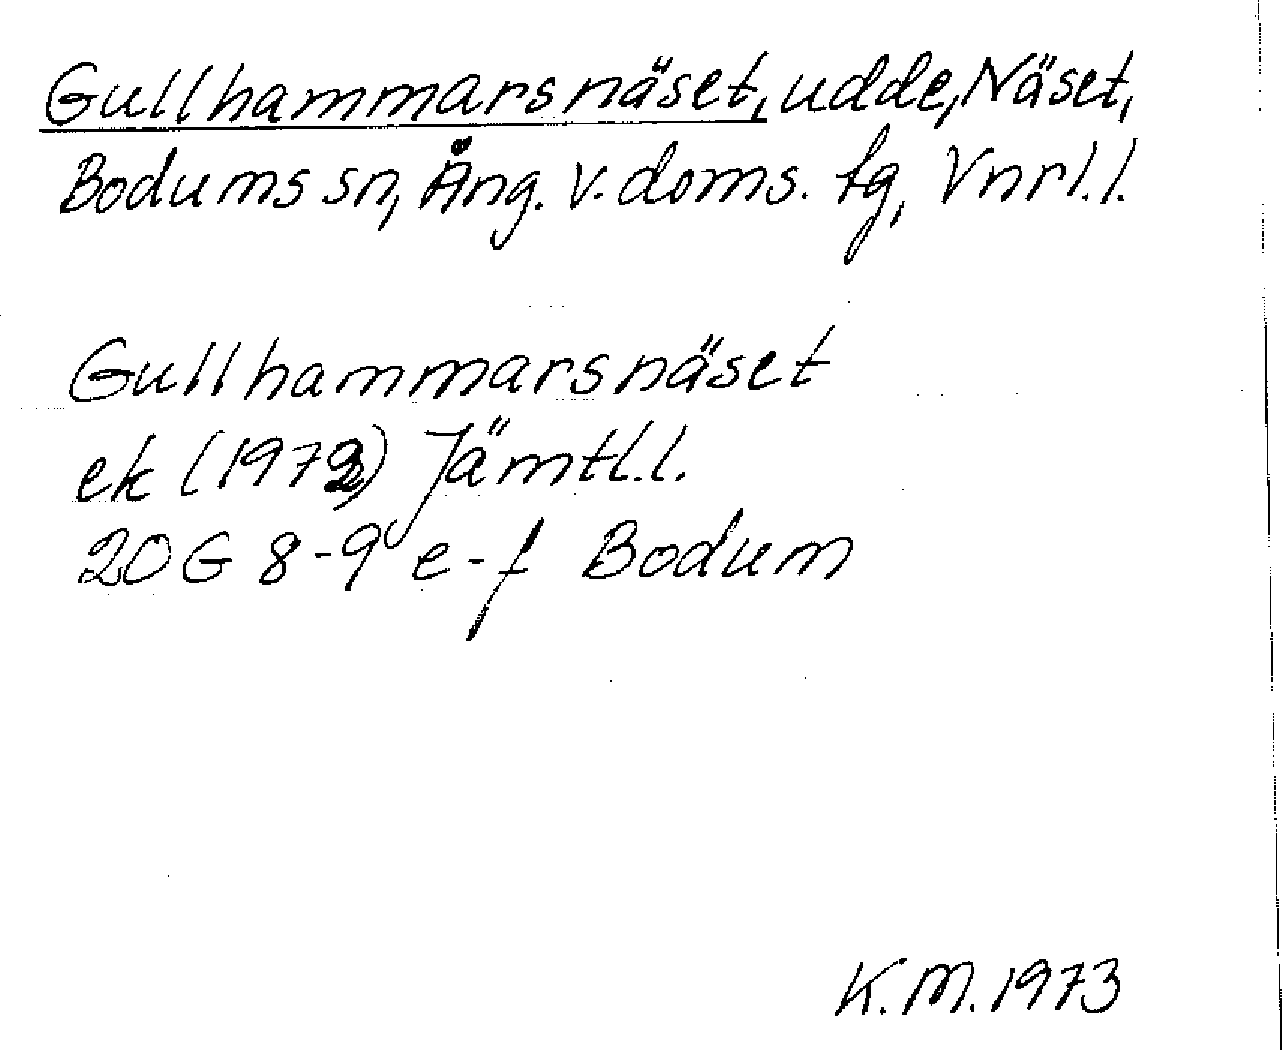 Gullhammarsnäset, udde, Näset,
Bodums sn, Ång. v. doms. tg, Vnrl.l.
Gullhammarsnäset
ek (1972) Jämtl.l.
20G 8-9 e-f Bodum
K.M. 1973